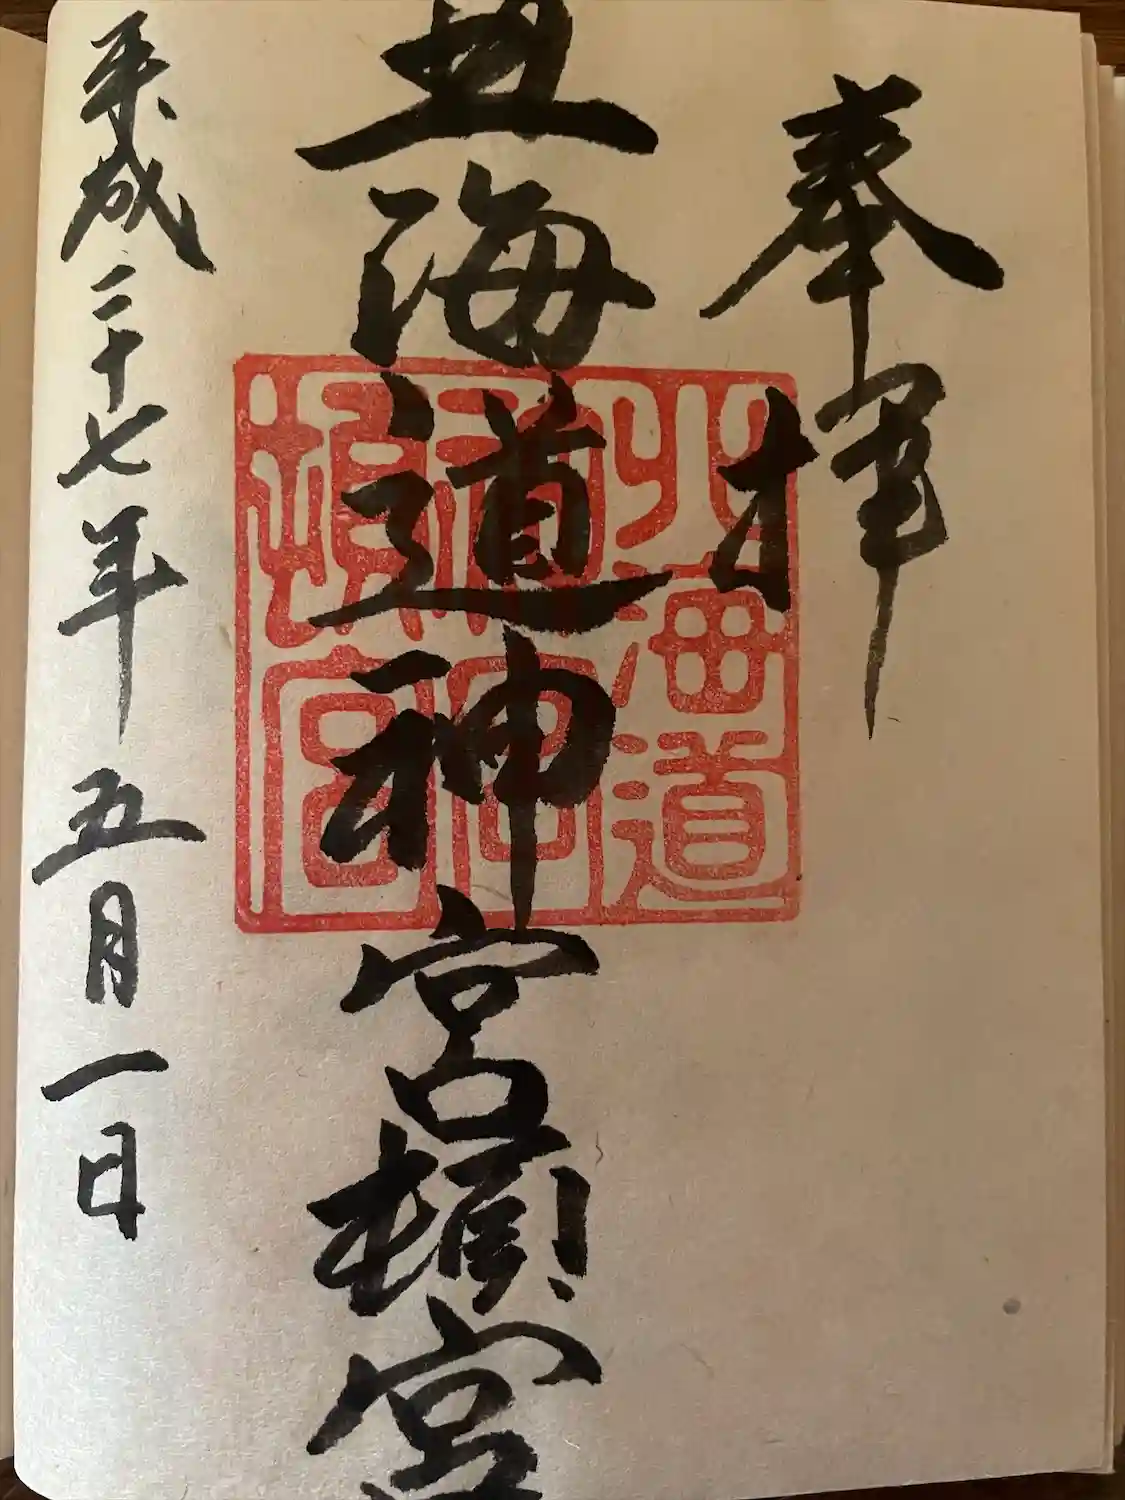 奉拝
北海道神宮頓宮
平成二十七年五月一日
北海道
神宮
頓宮